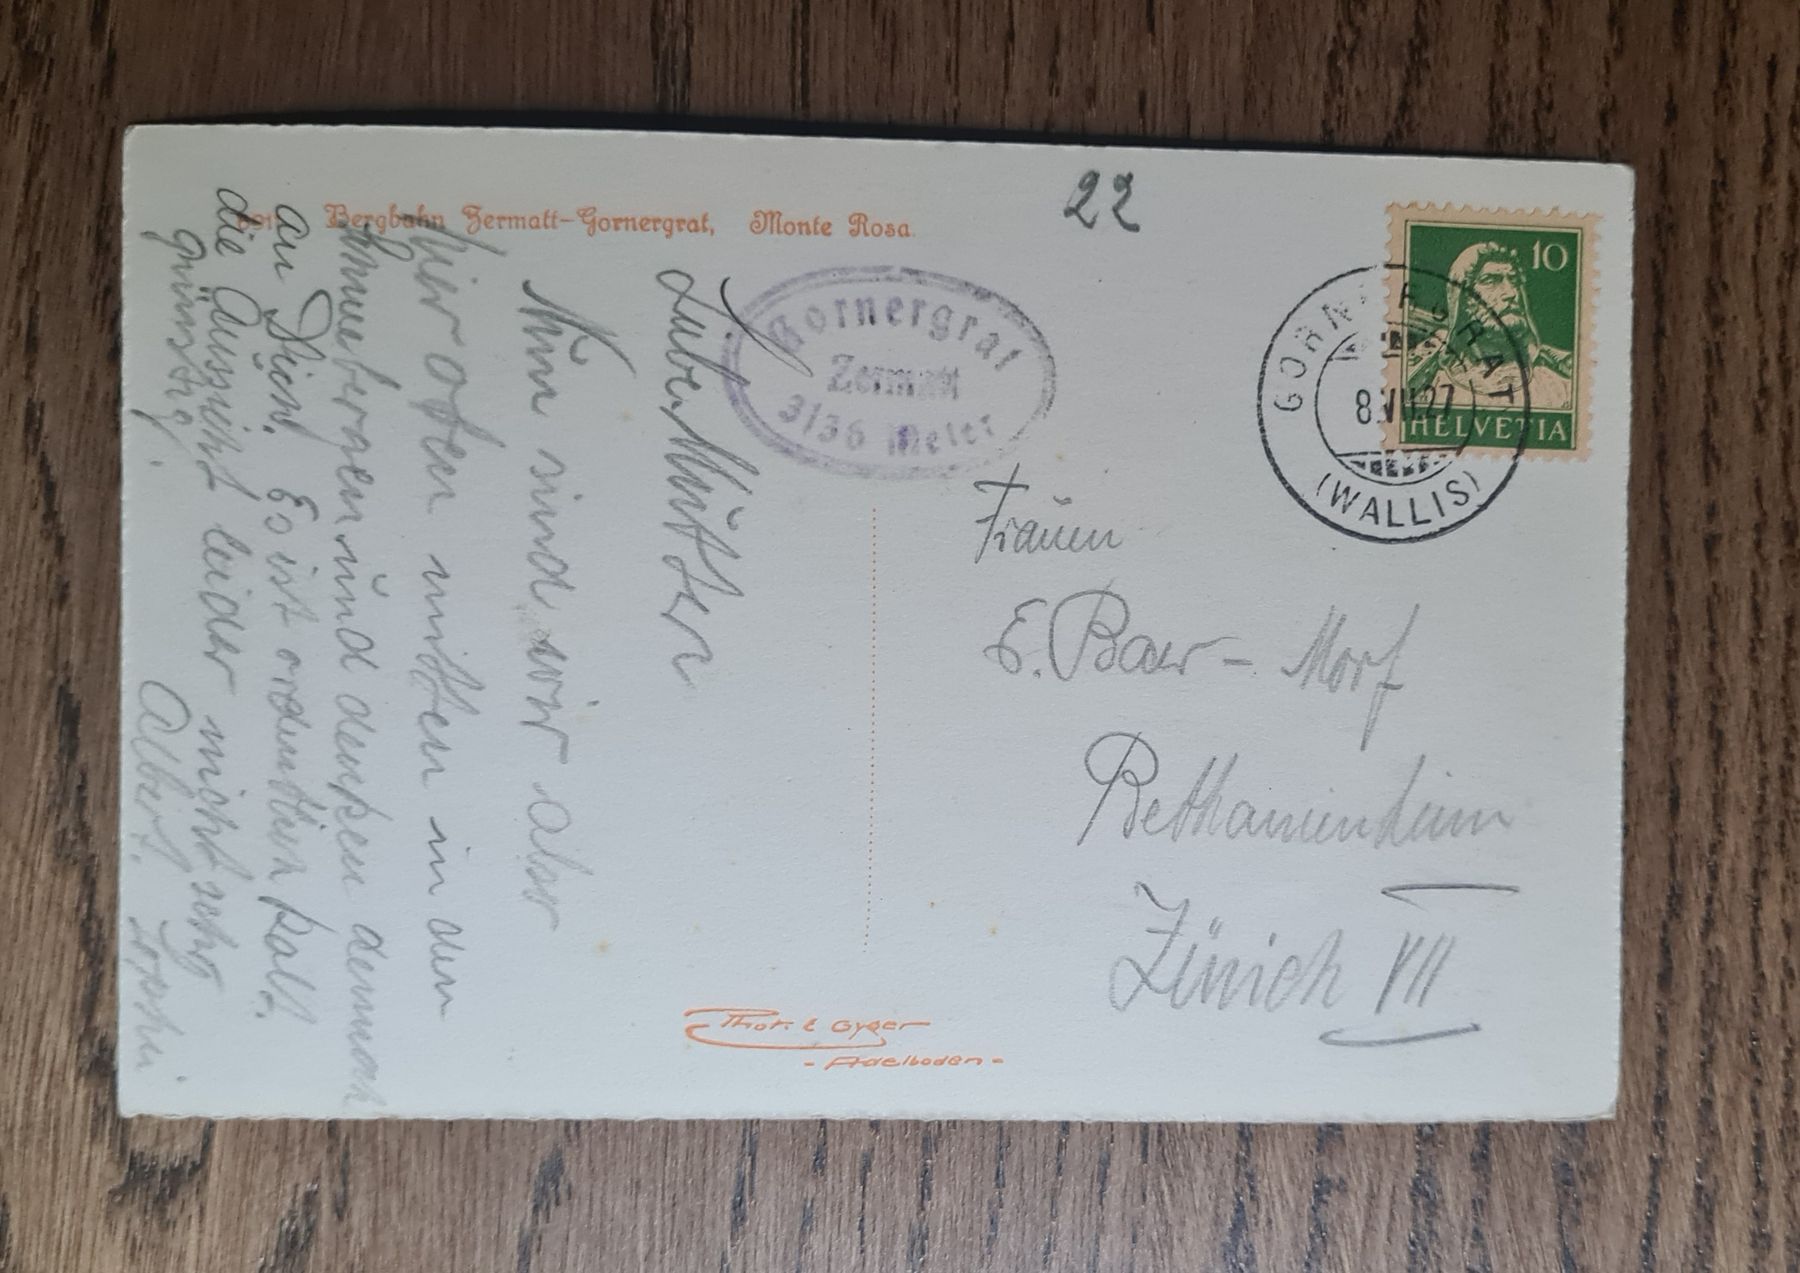 Bergbahn Zermatt-Gornergrat, Monte Rosa.
22
10
HELVETIA
GORNERGRAT
8.VII.27
(WALLIS)
Gornergrat
Zermatt
3136 Meter
Liebe Mutter
Nun sind wir aber
hier oben mitten in den
Schneebergen und denken dennoch
an Dich. Es ist ordentlich kalt.
die Aussicht leider nicht sehr
günstig.
Albert.
Frauen
E. Baer-Morf
Zürich VII
Phot. E. Gyger
- Adelboden -